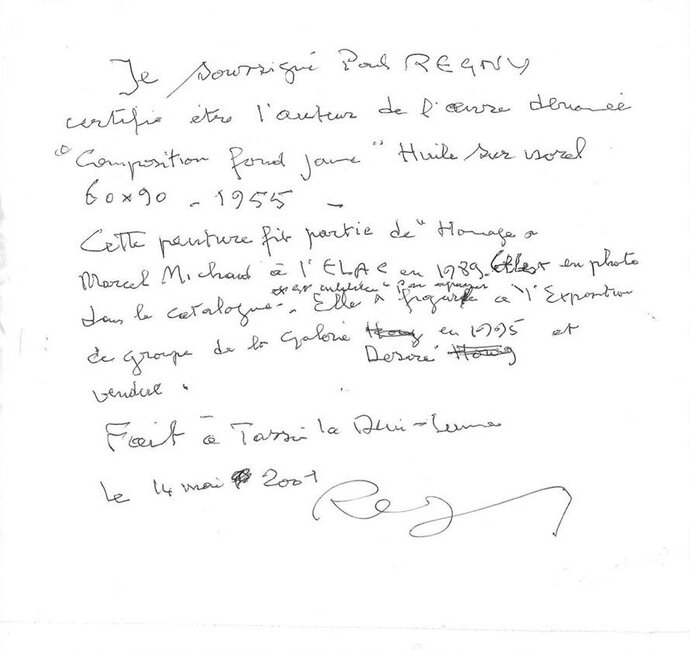 Je soussigné Paul REGNY
certifie être l'auteur de l'œuvre dénomée
"Composition fond jaune" Huile sur isorel
60x90 - 1955 -
Cette peinture fit partie de "Homage a
Marcel Michaud à l'ELAC en 1989. Elle est en photo
dans le catalogue. Elle a figuré à l'Exposition
de groupe de la Galerie en 1995 et
Desiré
vendue.
Fait à Tassin la Demi-Lune
le 14 mai 2001
Regny